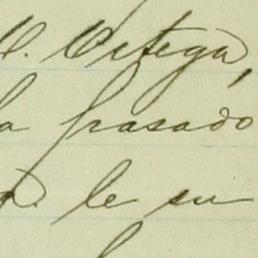 C. Ortega,
la pasado
le su